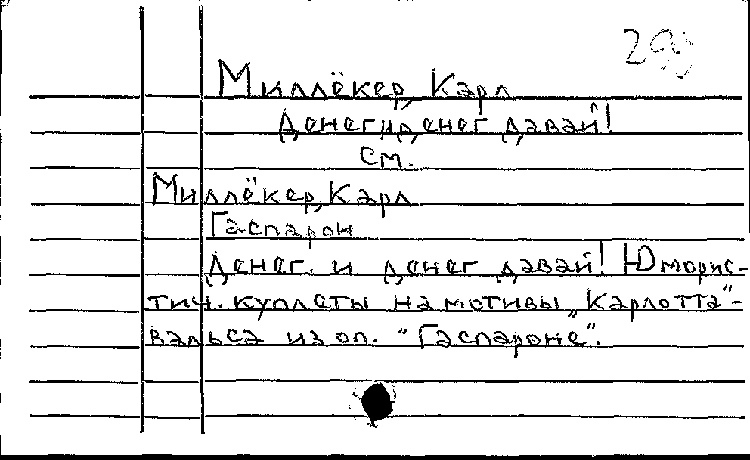 Миллёкер, Карл
Денег и денег давай!
см.
Миллёкер, Карл
Гаспарон
Денег и денег давай! Юморис-
тич. куплеты на мотивы „Карлотта"-
вальса из оп. "Гаспароне".